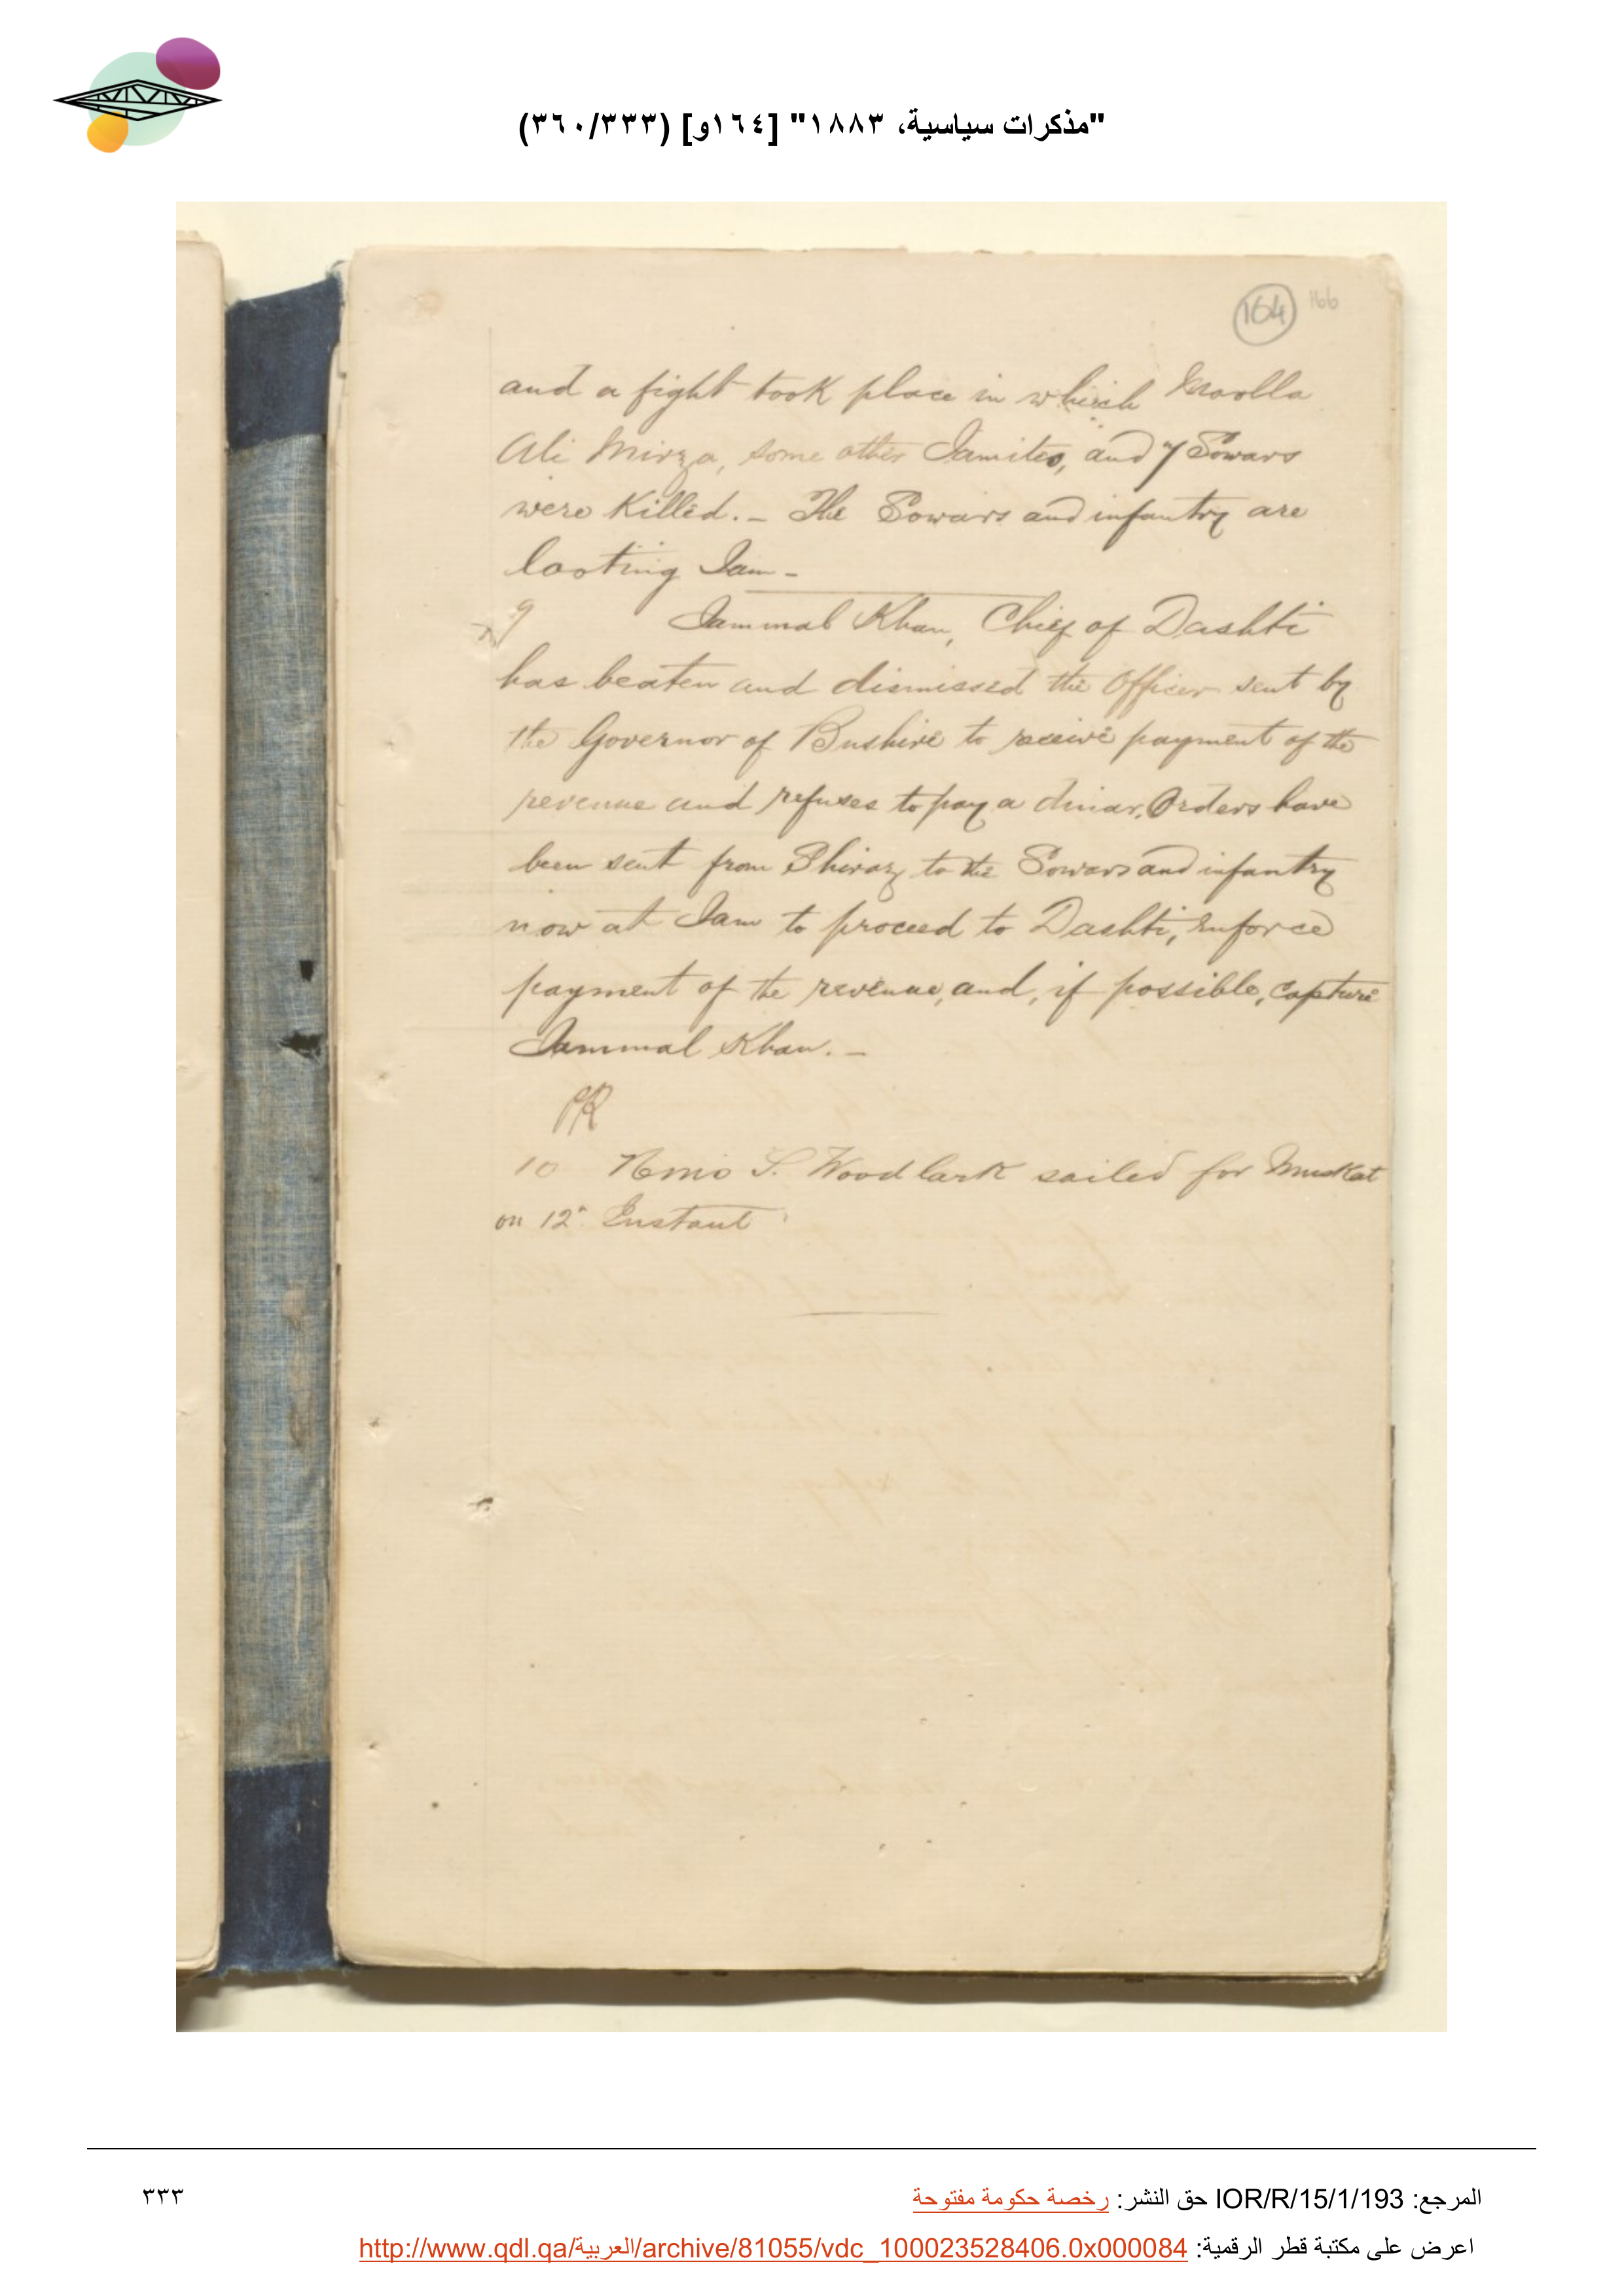 "مذكرات سياسية، ١٨٨٣" [١٦٤و] (٣٦٠/٣٣٣)
164 166
and a fight took place in which Moolla
Ali Mirza, some other Jamites, and 7 Sowars
were killed. - The Sowars and infantry are
looting Jam -
9 Jammal Khan, Chief of Dashti
has beaten and dismissed the Officer sent by
the Governor of Bushire to receive payment of the
revenue and refuses to pay a dinar. Orders have
been sent from Shiraz to the Sowars and infantry
now at Jam to proceed to Dashti, enforce
payment of the revenue, and, if possible, capture
Jammal Khan. -
10 S. Woodlark sailed for Muskat
on 12" Instant
المرجع: IOR/R/15/1/193 حق النشر: رخصة حكومة مفتوحة
٣٣٣
اعرض على مكتبة قطر الرقمية: http://www.qdl.qa/العربية/archive/81055/vdc_100023528406.0x000084